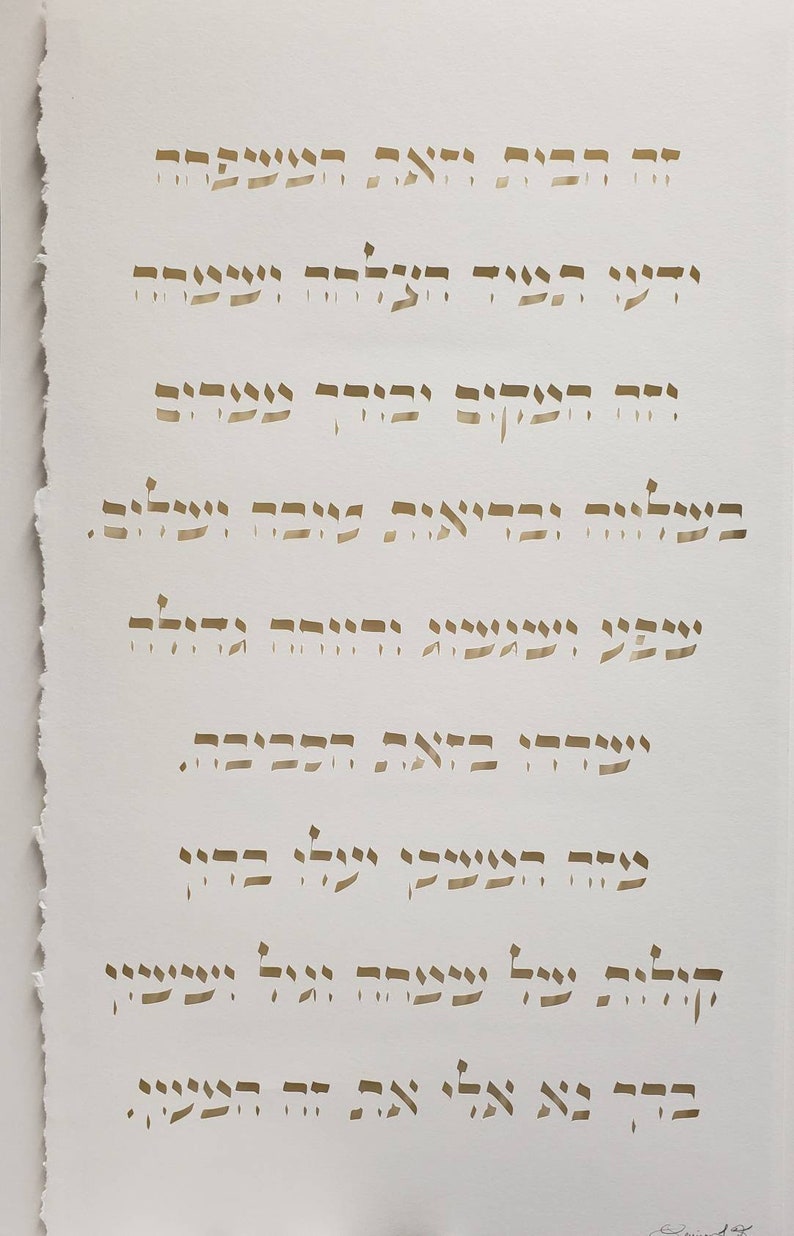 זה הבית וזאת המשפחה
ידעו תמיד הצלחה ושמחה
וזה המקום יבורך ממרום
בשלווה ובריאות טובה ושלום.
שפע ושגשוג ורווחה גדולה
ישררו בזאת הסביבה.
מזה המשכן יעלו בהין
קולות של שמחה וגיל וששון
ברך נא אלי את זה המעון.